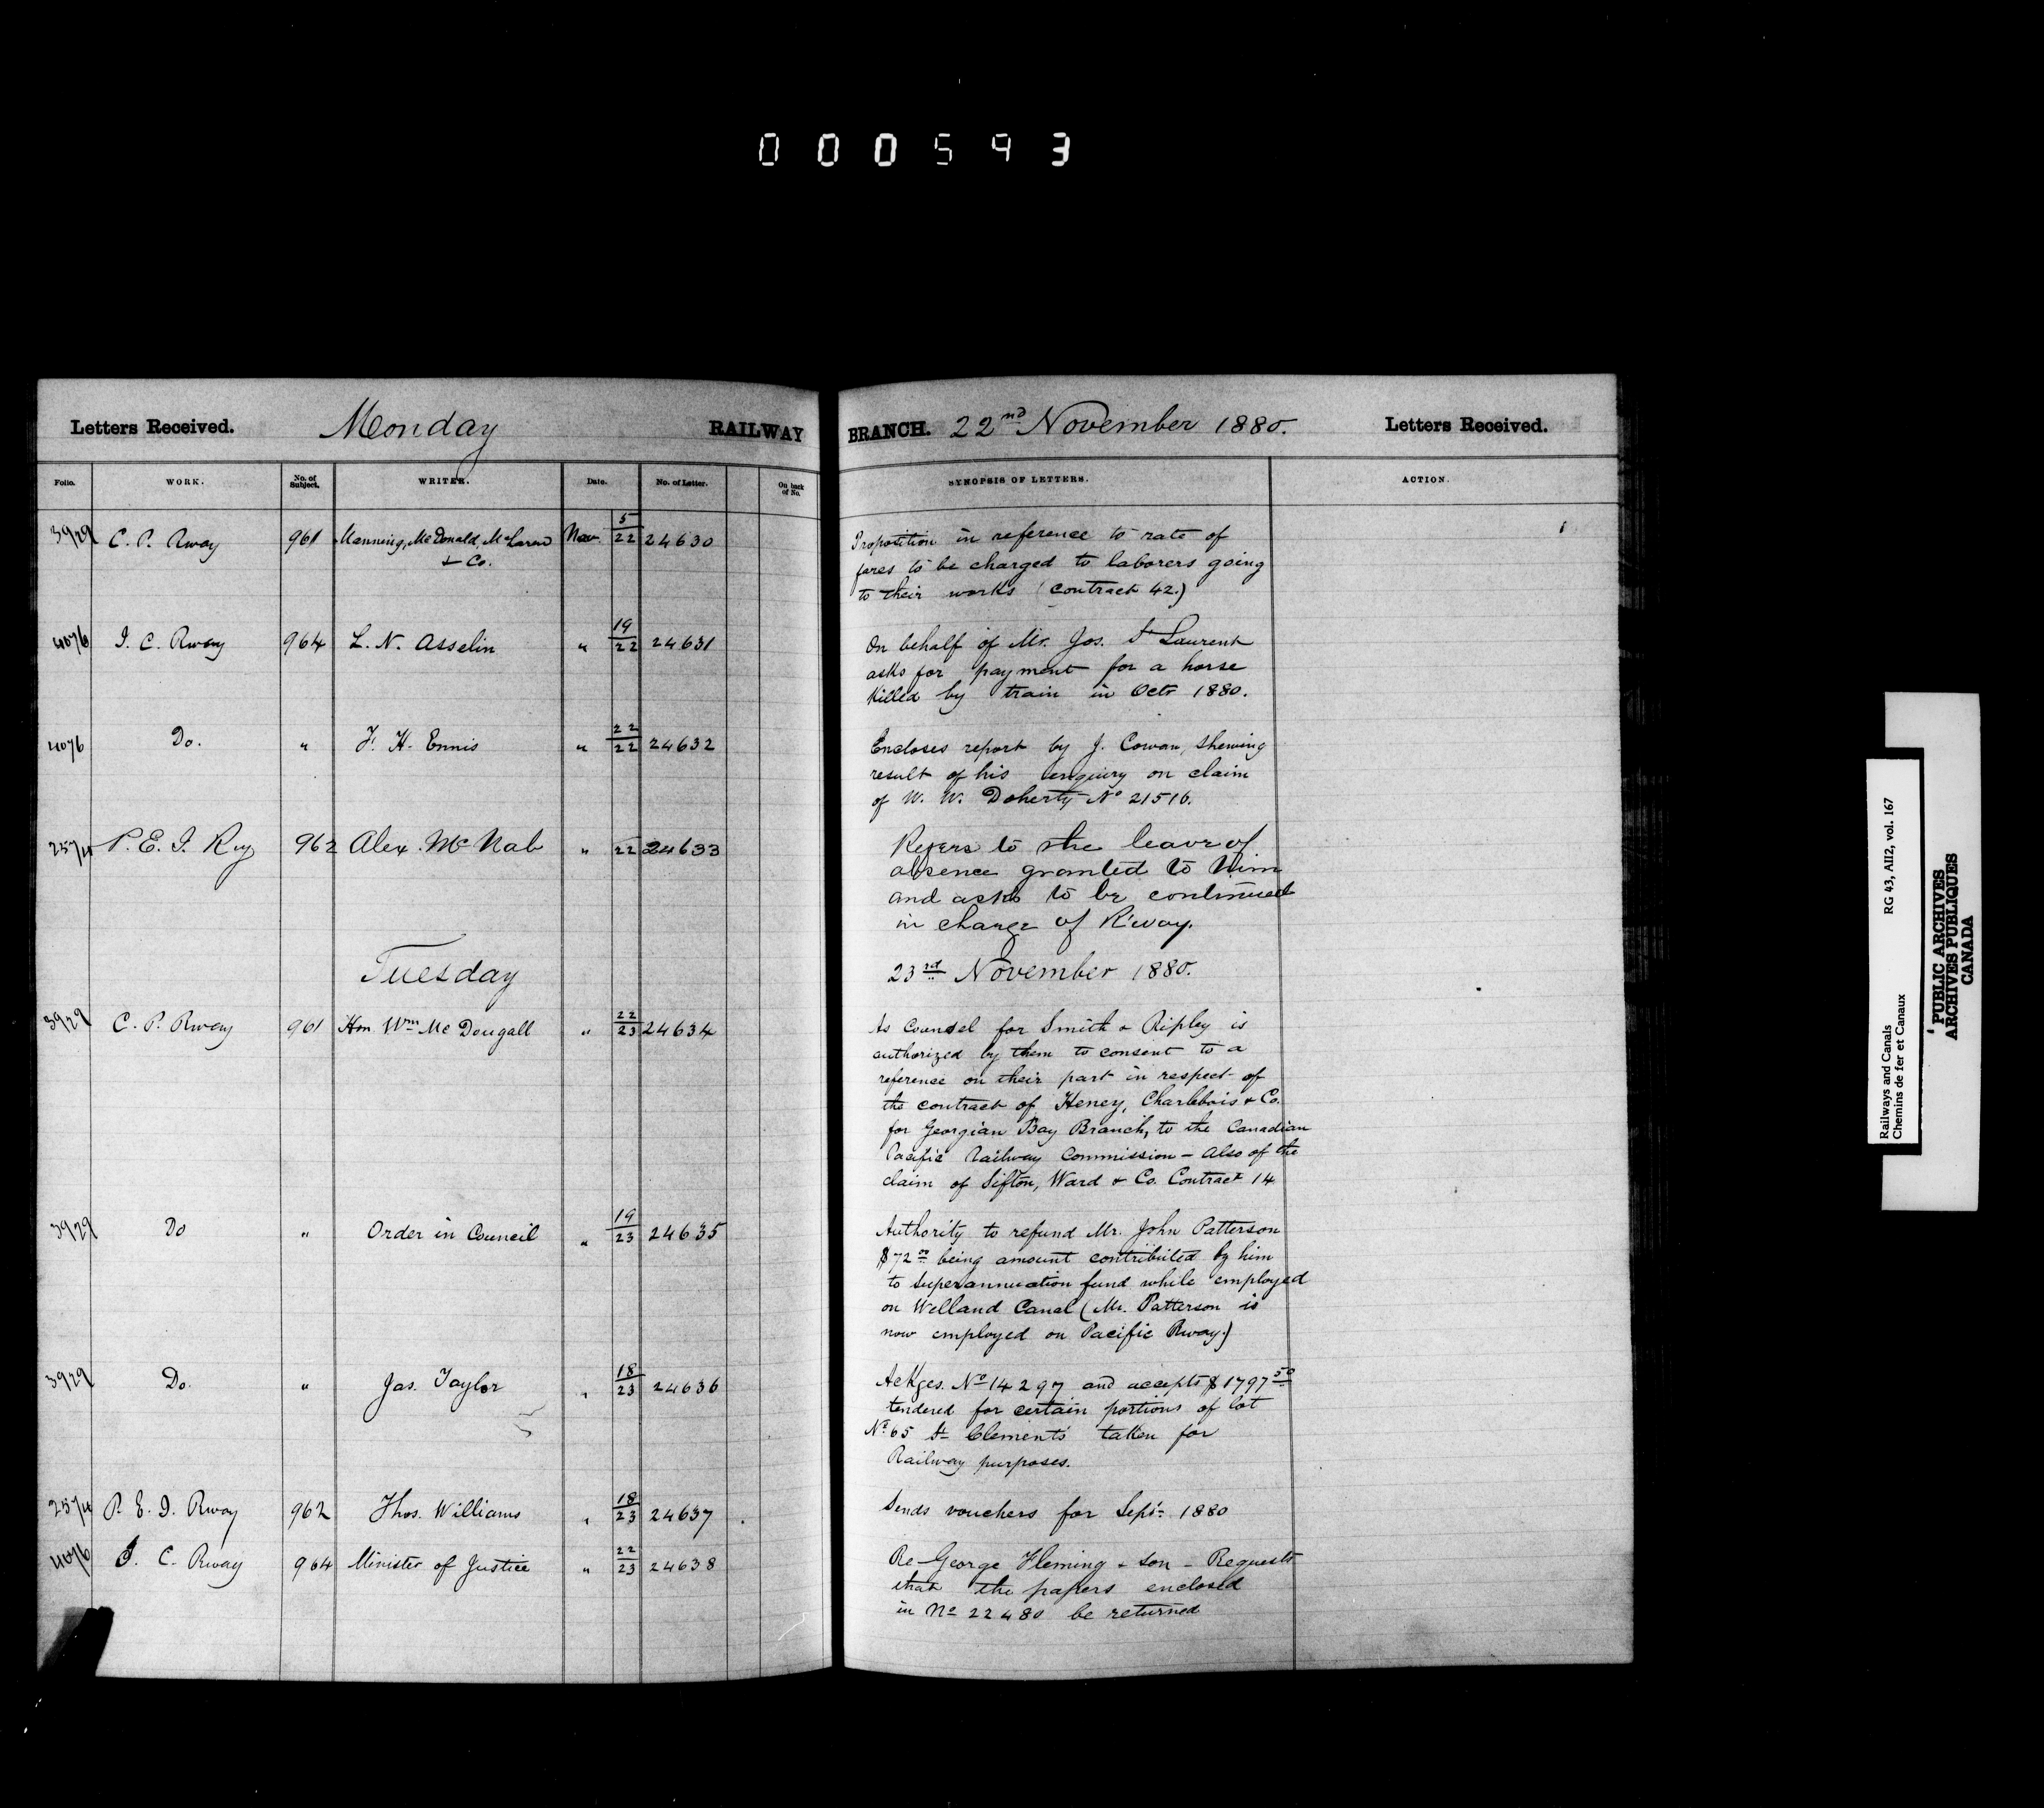 000593
Letters Received. Monday RAILWAY BRANCH. 22nd November 1880. Letters Received.
Folio. WORK. No. of Subject. WRITER. Date. No. of Letter. On back of No. SYNOPSIS OF LETTERS. ACTION.
3929 C. P. Rway 961 Manning, McDonald, McLaren Nov. 5/22 24630 Proposition in reference to rate of
& Co. fares to be charged to laborers going
to their works (contract 42.)
4076 I. C. Rway 964 L. N. Asselin " 19/22 24631 On behalf of Mr. Jos. St Laurent
asks for payment for a horse
Killed by train in Octr 1880.
4076 Do. " F. H. Ennis " 22/22 24632 Encloses report by J. Cowan, shewing
result of his enquiry on claim
of W. W. Doherty No 21516.
2574 P. E. I. Ry 962 Alex. McNab " 22 24633 Refers to the leave of
absence granted to him
and asks to be continued
in charge of R'way.
Tuesday 23rd November 1880.
3929 C. P. Rway 961 Hon. Wm McDougall " 22/23 24634 As Counsel for Smith & Ripley is
authorized by them to consent to a
reference on their part in respect of
the contract of Heney, Charlebois & Co.
for Georgian Bay Branch, to the Canadian
Pacific Railway Commission - Also of the
claim of Sifton, Ward & Co. Contract 14
3929 Do " Order in Council " 19/23 24635 Authority to refund Mr. John Patterson
$72.00 being amount contributed by him
to Superannuation fund while employed
on Welland Canal (Mr. Patterson is
now employed on Pacific Rway.)
3929 Do. " Jas. Taylor " 18/23 24636 Ackges. No 14297 and accepts $1797.50
tendered for certain portions of lot
No 65 St Clements taken for
Railway purposes.
2574 P. E. I. Rway 962 Thos. Williams " 18/23 24637 Sends vouchers for Sept. 1880
4076 I. C. Rway 964 Minister of Justice " 22/23 24638 Re-George Fleming & Son - Requests
that the papers enclosed
in No 22480 be returned
Railways and Canals RG 43, AII2, vol. 167
Chemins de fer et Canaux
PUBLIC ARCHIVES
ARCHIVES PUBLIQUES
CANADA